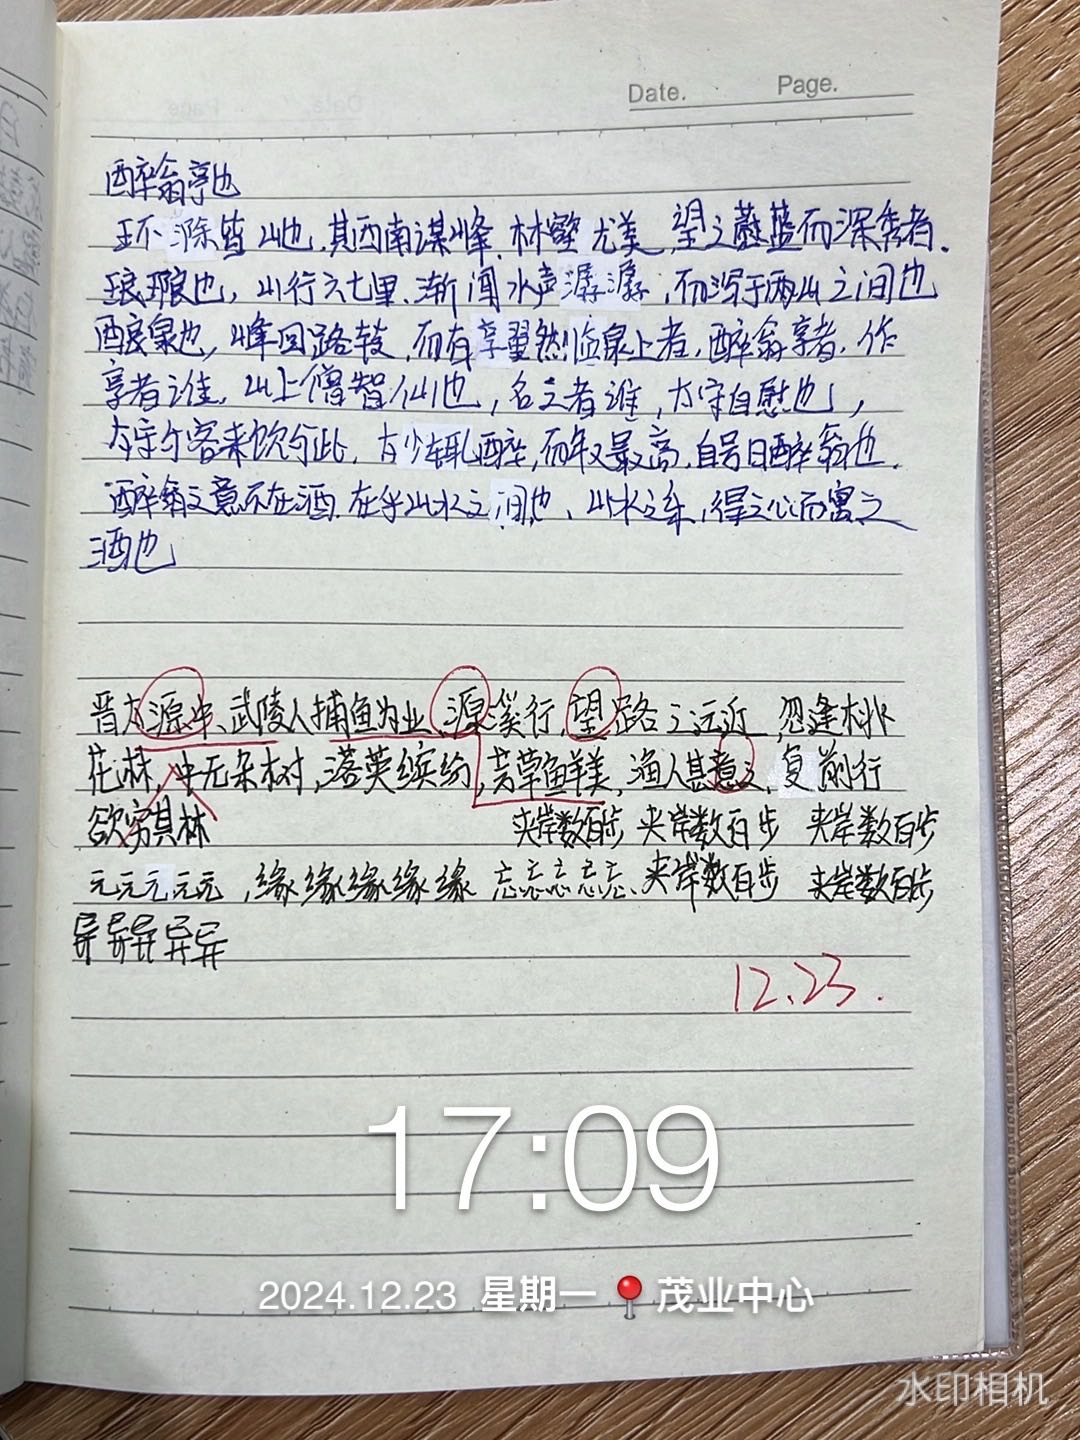 Date. Page.
醉翁亭也
环滁皆山也，其西南谋峰，林壑尤美，望之蔚蓝而深秀者，
琅琊也，山行六七里，渐闻水声潺潺，而泻于两山之间也
酿泉也，峰回路转，而有享翼然临泉上者，醉翁享者，作
享者谁，山上僧智仙也，名之者谁，太守自慰也，
太守与客来饮与此，方少辄醉，而年又最高，自号曰醉翁也，
醉翁之意不在酒，在乎山水之间也，山水之乐，得之心而寓之
酒也
晋太源中，武陵人捕鱼为业，源溪行，望路之远近，忽逢桃
花林，中无杂树，落英缤纷，芳草鱼羊美，渔人甚意之，复前行
欲穷其林 夹岸数百步 夹岸数百步 夹岸数百步
元元元元元，缘缘缘缘缘 忘忘忘忘忘，夹岸数百步 夹岸数百步
异异异异异
12.23.
17:09
2024.12.23 星期一 📍茂业中心
水印相机